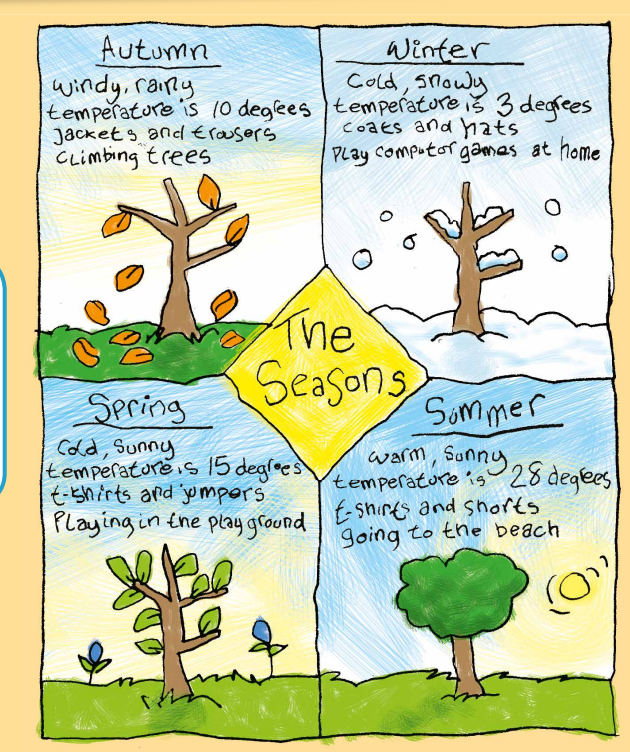 Autumn
windy, rainy
temperature is 10 degrees
Jackets and trousers
climbing trees
Winter
Cold, snowy
temperature is 3 degrees
coats and hats
Play computor games at home
The
Seasons
Spring
Cold, sunny
temperature is 15 degrees
t-shirts and jumpers
Playing in the playground
Summer
warm, sunny
temperature is 28 degrees
t-shirts and shorts
going to the beach